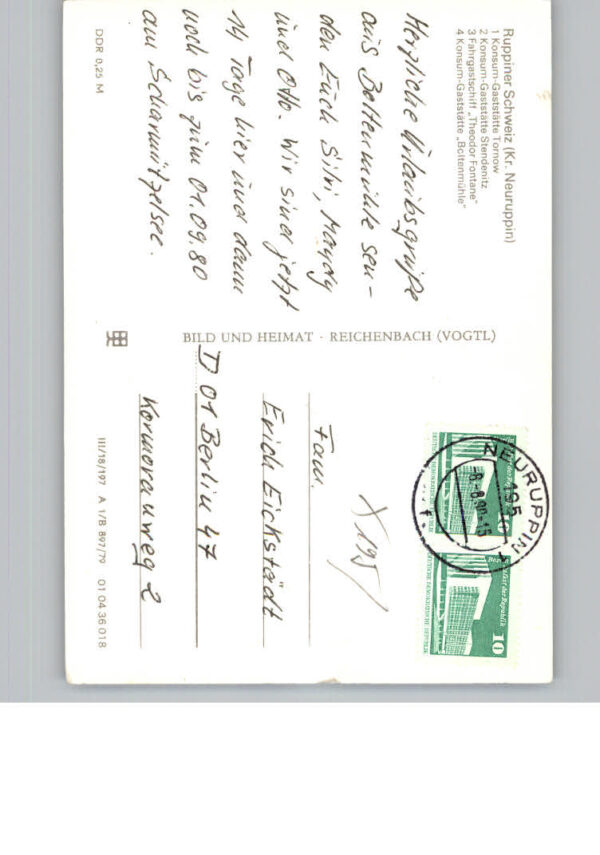 Ruppiner Schweiz (Kr. Neuruppin)
1 Konsum-Gaststätte Tornow
2 Konsum-Gaststätte Stendenitz
3 Fahrgastschiff „Theodor Fontane"
4 Konsum-Gaststätte „Boltenmühle"
Herzliche Urlaubsgrüße
aus Boltenmühle sen-
den Euch Silvi, Mandy
und Otto. Wir sind jetzt
14 Tage hier und dann
noch bis zum 01.09.80
am Scharmützelsee.
DDR 0,25 M
BILD UND HEIMAT · REICHENBACH (VOGTL)
NEURUPPIN 1
195
-8.-8.80-15
10
DEUTSCHE DEMOKRATISCHE REPUBLIK
10
DEUTSCHE DEMOKRATISCHE REPUBLIK
X 195/
Fam.
Erich Eickstädt
D 01 Berlin 47
Kormoranweg 2
III/18/197 A 1/B 897/79 01 04 36 018